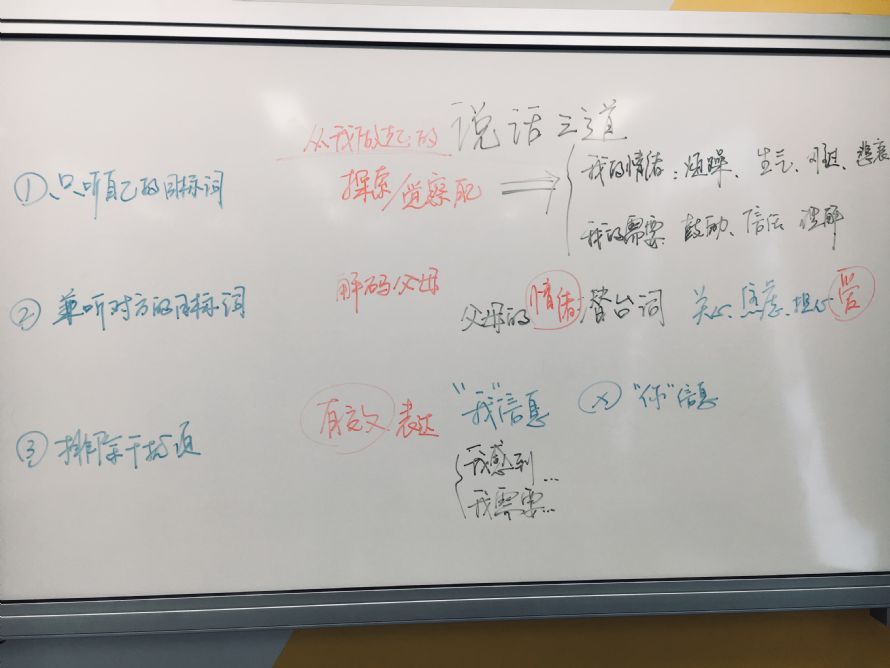 从我做起的 说话之道
①、只听自己的目标词 探索/觉察 我的情绪：烦躁、生气、沮、悲哀
我的需要 鼓励、信任 理解
② 兼听对方的目标词 解码父母 父母的情绪潜台词 关心、焦虑、担心 爱
③ 排除干扰项 有效表达 "我"信息 ✗ "你"信息
我感到...
我需要...